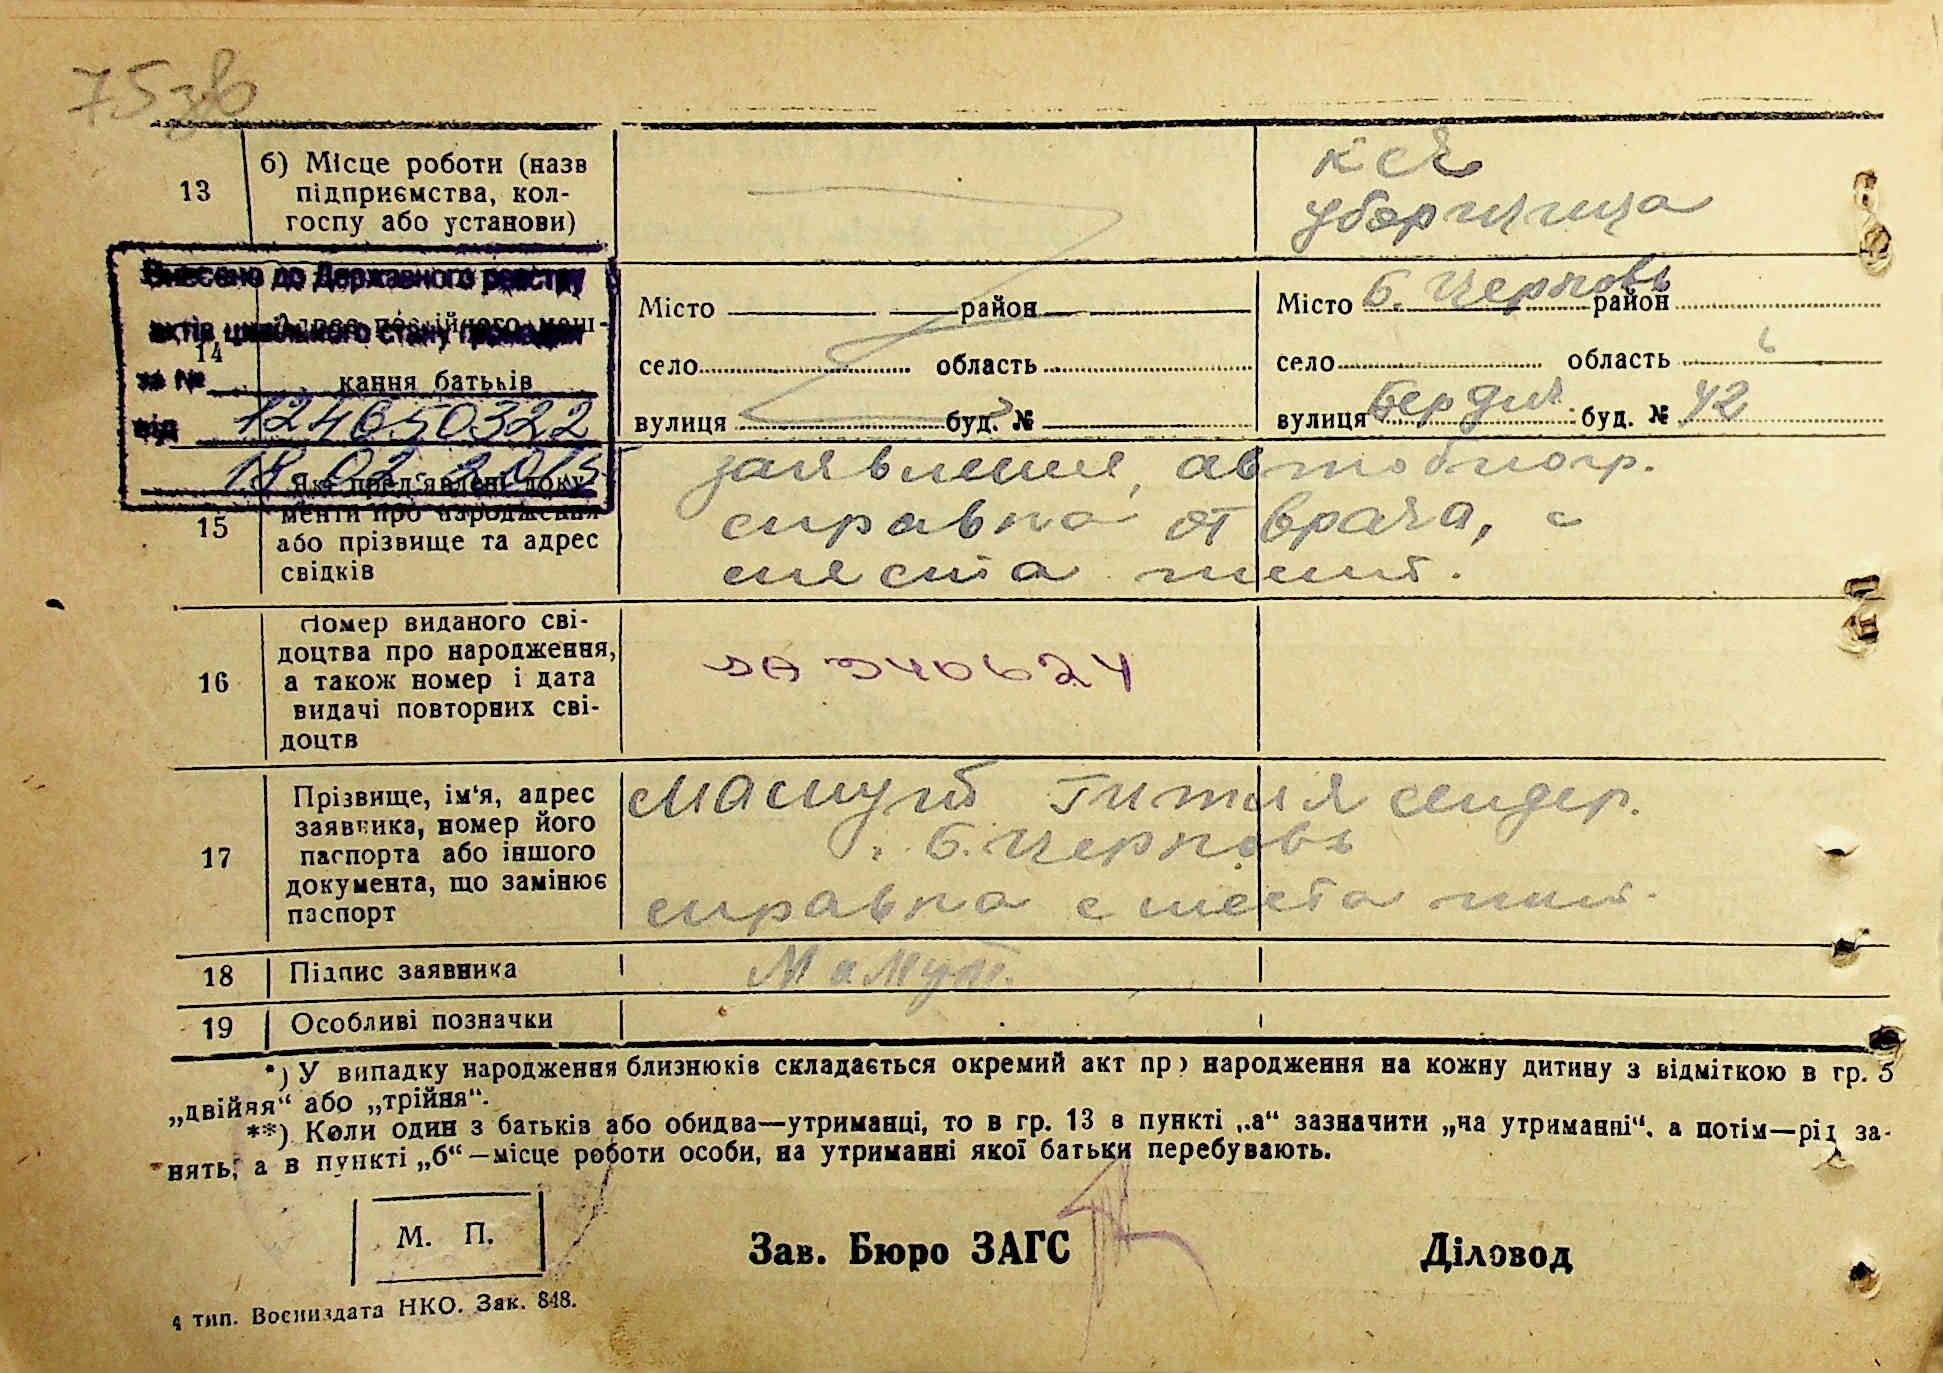 75зв
13
б) Місце роботи (назв
підприємства, кол-
госпу або установи)
КСЧ
уборщица
Внесено до Державного реєстру
актів цивільного стану громадян
за №
від 124650322
18.02.2015
14
кання батьків
Місто район
село область
вулиця буд. №
Місто Б. Церковь район
село область
вулиця Бердич. буд. № 42
15
Які пред'явлені доку-
менти про народження
або прізвище та адрес
свідків
заявление, автобиогр.
справка от врача, с
места жит.
16
Номер виданого сві-
доцтва про народження,
а також номер і дата
видачі повторних сві-
доцтв
340624
17
Прізвище, ім'я, адрес
заявника, номер його
паспорта або іншого
документа, що замінює
паспорт
Мамут
Б. Церковь
справка с места жит.
18
Підпис заявника
Мамут.
19
Особливі позначки
*) У випадку народження близнюків складається окремий акт про народження на кожну дитину з відміткою в гр. 5
„двійня“ або „трійня“.
**) Коли один з батьків або обидва—утриманці, то в гр. 13 в пункті „а“ зазначити „на утриманні“, а потім—рід за-
нять, а в пункті „б“—місце роботи особи, на утриманні якої батьки перебувають.
М. П.
Зав. Бюро ЗАГС
Діловод
4 тип. Воениздата НКО. Зак. 848.